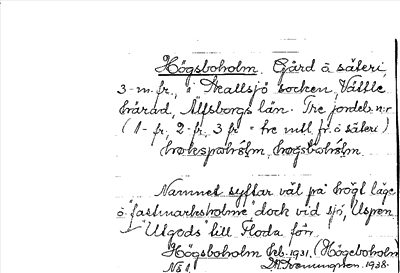 Högsboholm. Gård å säteri,
3-m. fr., i Skallsjö socken, Vättle
härad, Älfsborgs län. Tre jordeb. n:r
(1- fr., 2- fr., 3 fr = tre mtl fr. å säteri)
Namnet syftar väl på högt läge
å "fastmarksholme" dock vid sjö, Uspen
"Utgods" till Floda förr.
Högsboholm feb. 1931. (Högeboholm
1938.